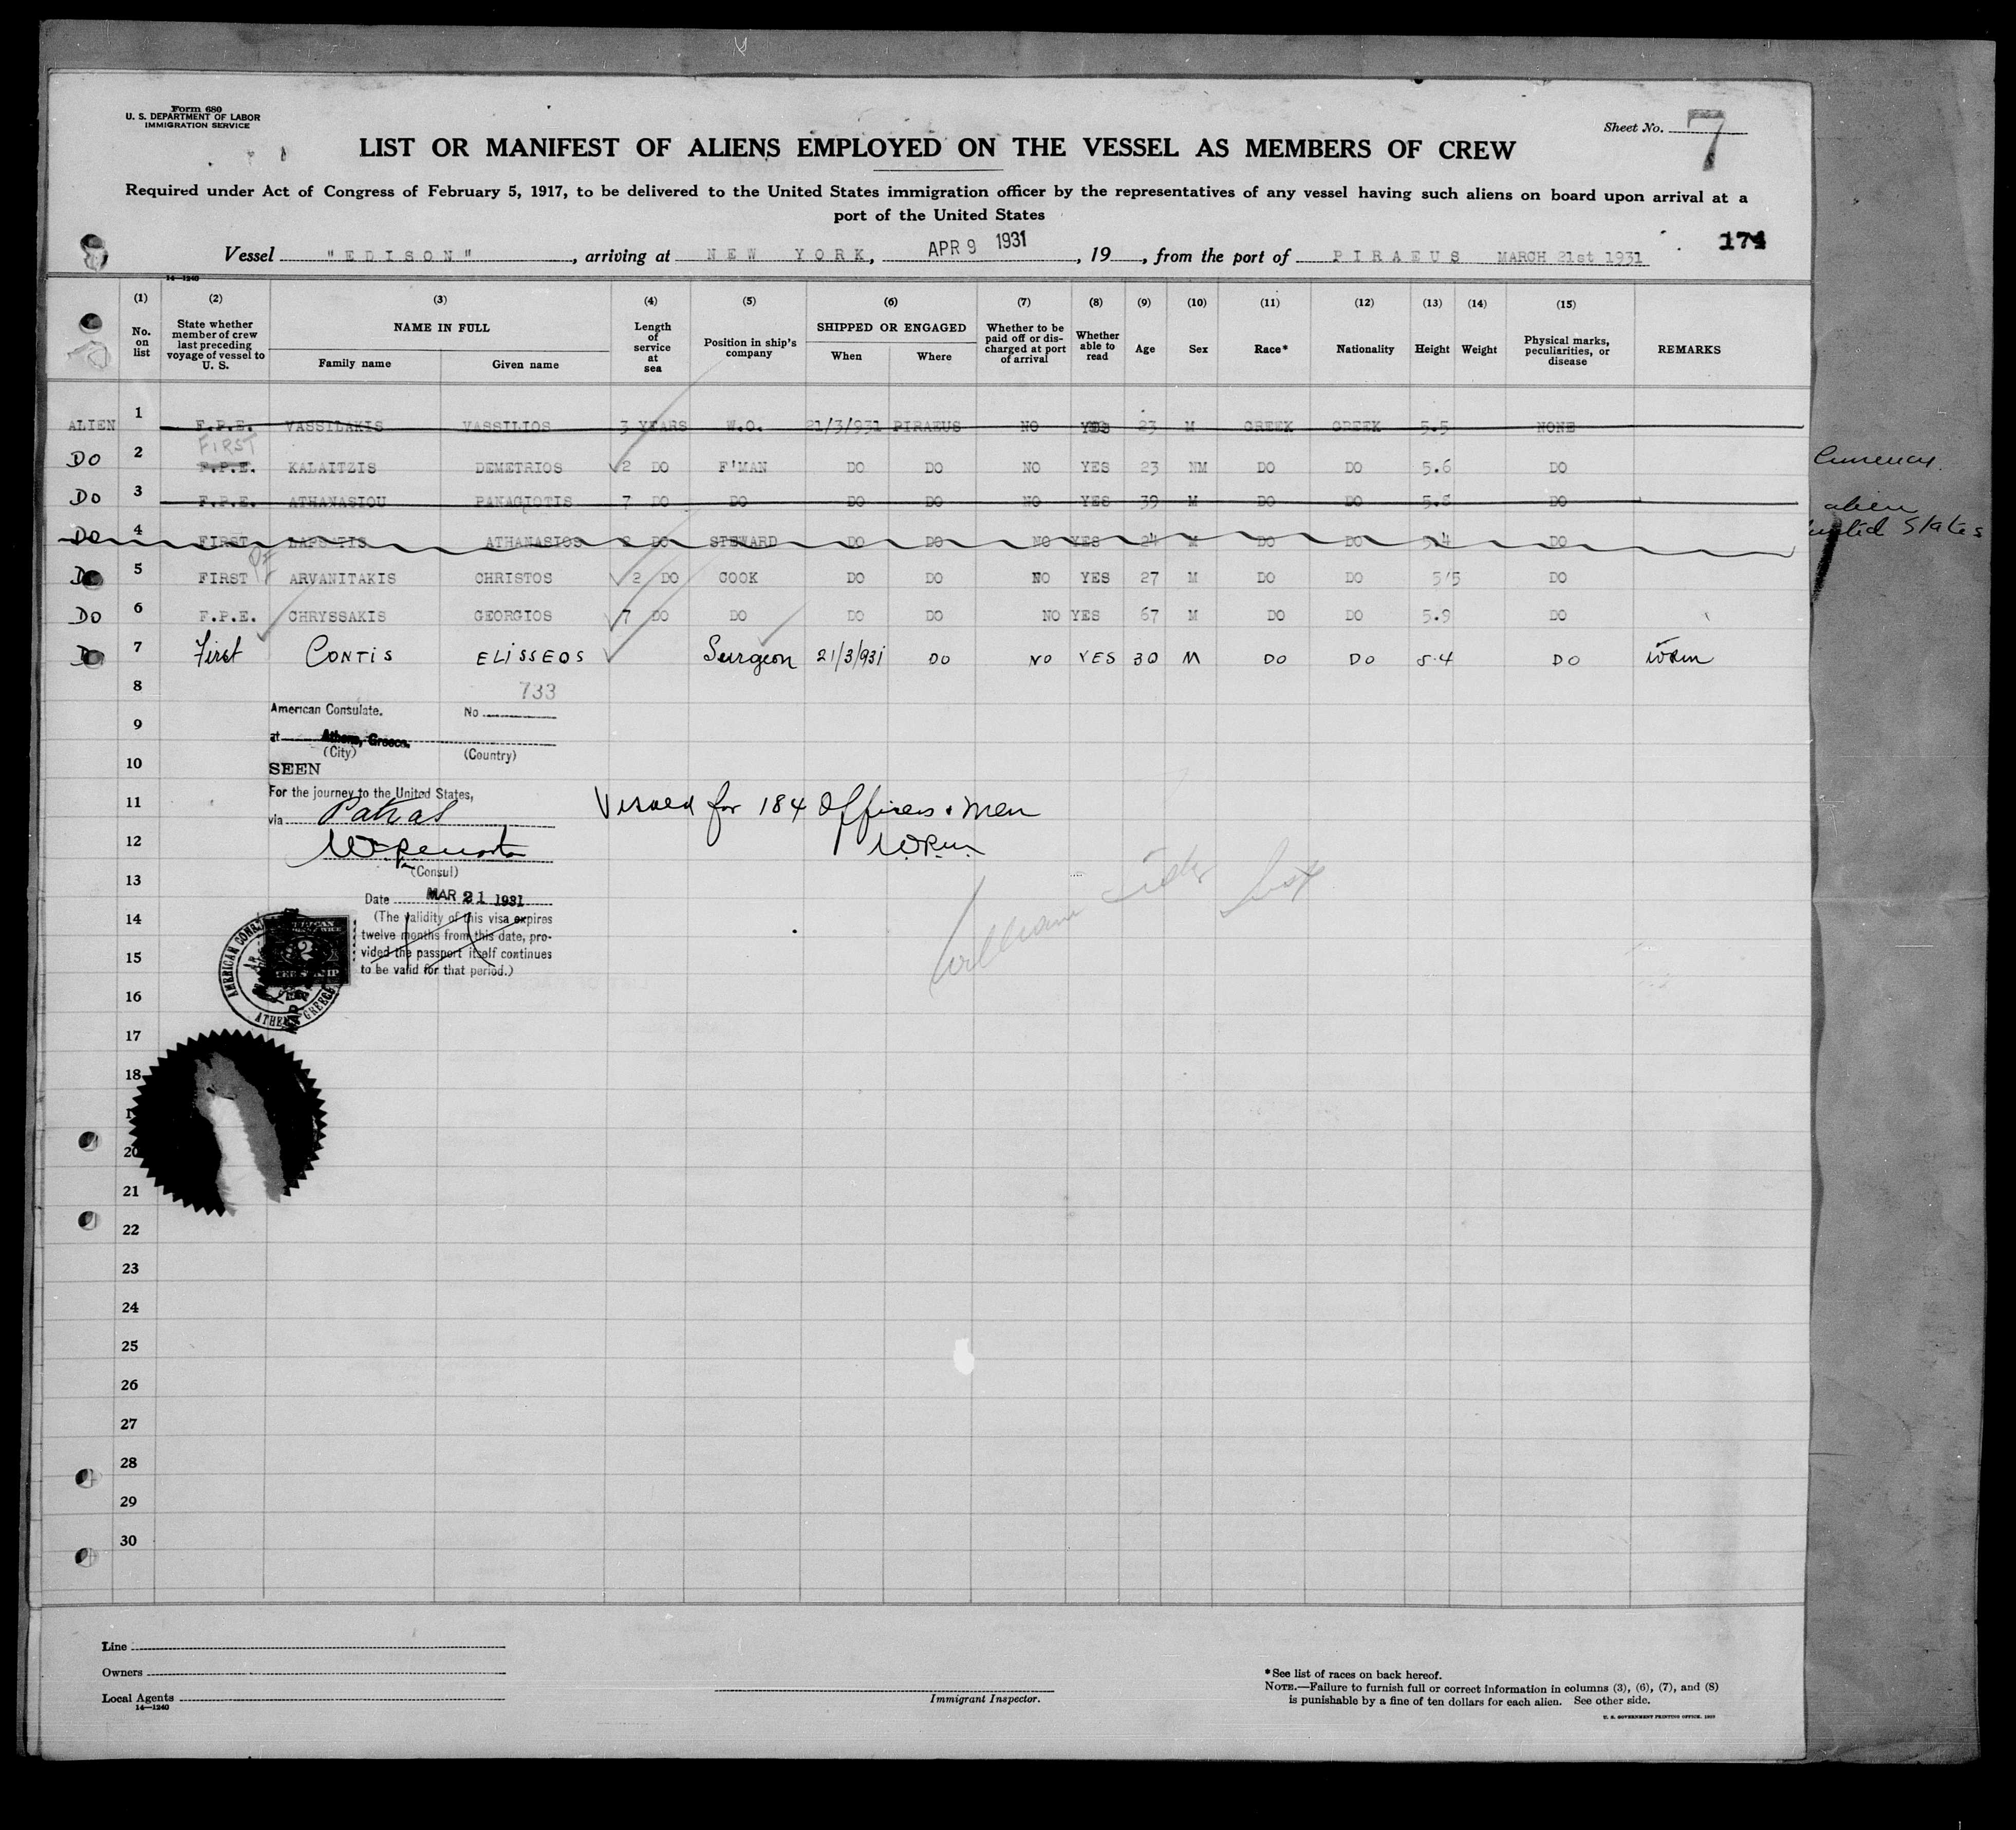 Form 680
U. S. DEPARTMENT OF LABOR
IMMIGRATION SERVICE
Sheet No. 7
LIST OR MANIFEST OF ALIENS EMPLOYED ON THE VESSEL AS MEMBERS OF CREW
Required under Act of Congress of February 5, 1917, to be delivered to the United States immigration officer by the representatives of any vessel having such aliens on board upon arrival at a
port of the United States
174
Vessel "EDISON", arriving at NEW YORK, APR 9 1931, 19 , from the port of PIRAEUS MARCH 21st 1931
14—1240
(1) (2) (3) (4) (5) (6) (7) (8) (9) (10) (11) (12) (13) (14) (15)
No. on list State whether member of crew last preceding voyage of vessel to U. S. NAME IN FULL Family name Given name Length of service at sea Position in ship's company SHIPPED OR ENGAGED When Where Whether to be paid off or discharged at port of arrival Whether able to read Age Sex Race* Nationality Height Weight Physical marks, peculiarities, or disease REMARKS
ALIEN 1 F.P.E. VASSILAKIS VASSILIOS 3 YEARS W.O. 21/3/931 PIRAEUS NO YES 23 M GREEK GREEK 5.5 NONE
FIRST
DO 2 F.P.E. KALAITZIS DEMETRIOS 2 DO F'MAN DO DO NO YES 23 NM DO DO 5.6 DO
DO 3 F.P.E. ATHANASIOU PANAGIOTIS 7 DO DO DO DO NO YES 39 M DO DO 5.8 DO
DO 4 FIRST ATHANASIOS 2 DO STEWARD DO DO NO YES 24 M DO DO 5.4 DO
DO 5 FIRST PE ARVANITAKIS CHRISTOS 2 DO COOK DO DO NO YES 27 M DO DO 5/5 DO
DO 6 F.P.E. CHRYSSAKIS GEORGIOS 7 DO DO DO DO NO YES 67 M DO DO 5.9 DO
DO 7 First CONTIS ELISSEOS Surgeon 21/3/931 DO NO YES 30 M DO DO 5.4 DO WRM
8
9
10
11
12
13
14
15
16
17
18
20
21
22
23
24
25
26
27
28
29
30
733
American Consulate. No
at Athens, Greece.
(City) (Country)
SEEN
For the journey to the United States,
via Patras
(Consul)
Date MAR 21 1931
(The validity of this visa expires
twelve months from this date, pro-
vided the passport itself continues
to be valid for that period.)
AMERICAN
ATHENS GREECE
Visaed for 184 Officers & Men
WRM
William
alien
United States
Line
Owners
Local Agents
14—1240
Immigrant Inspector.
*See list of races on back hereof.
NOTE.—Failure to furnish full or correct information in columns (3), (6), (7), and (8)
is punishable by a fine of ten dollars for each alien. See other side.
U. S. GOVERNMENT PRINTING OFFICE